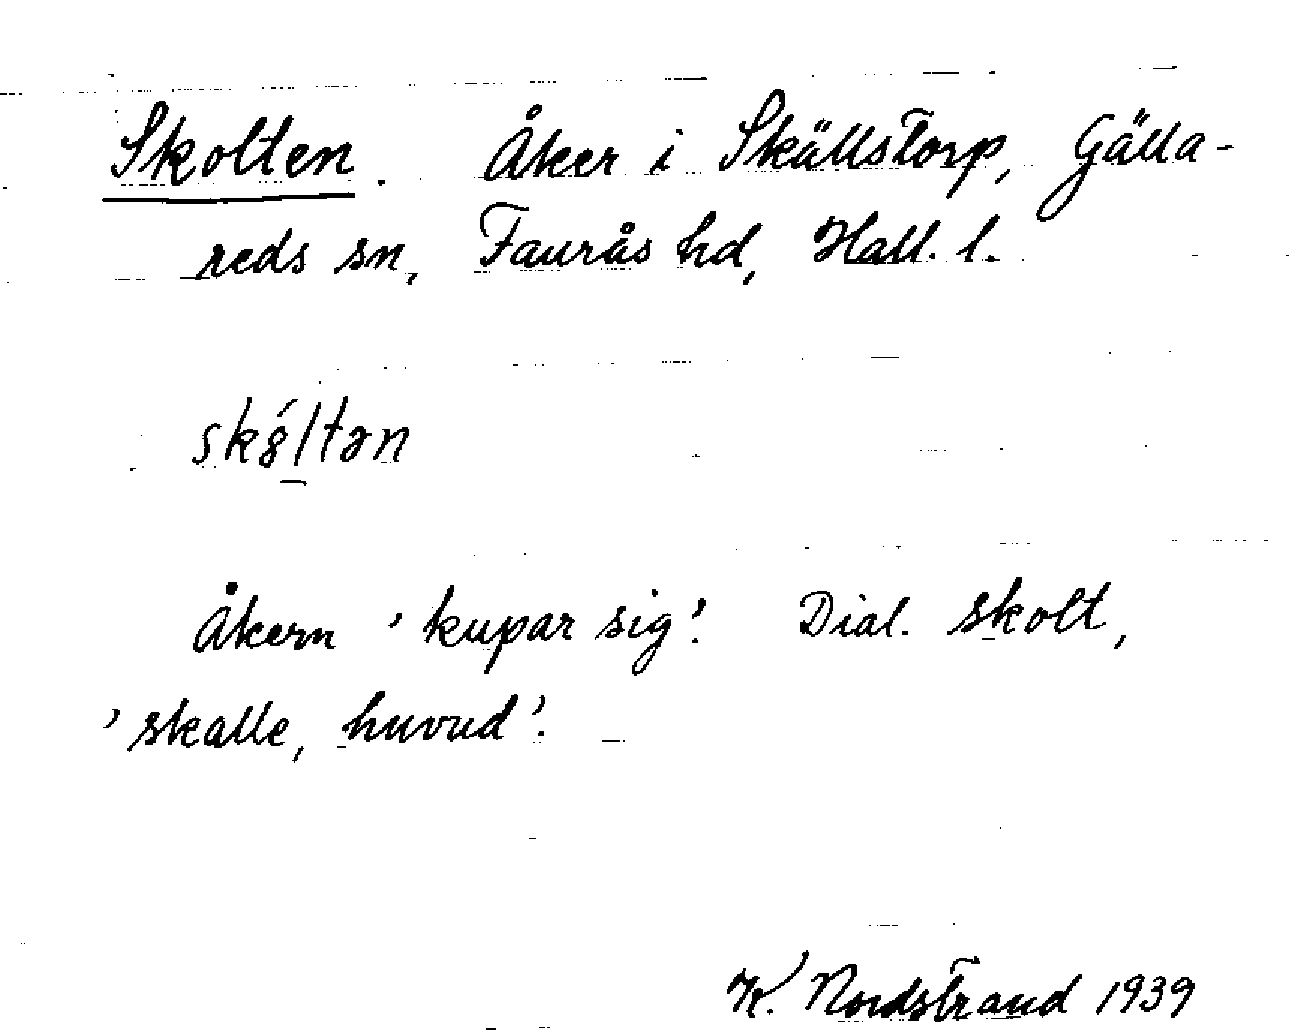 Skolten. Åker i Skällstorp, Gälla-
reds sn, Faurås hd, Hall. l.
skȣ́ltən
Åkern 'kupar sig'. Dial. skolt,
'skalle, huvud'.
K. Nordstrand 1939